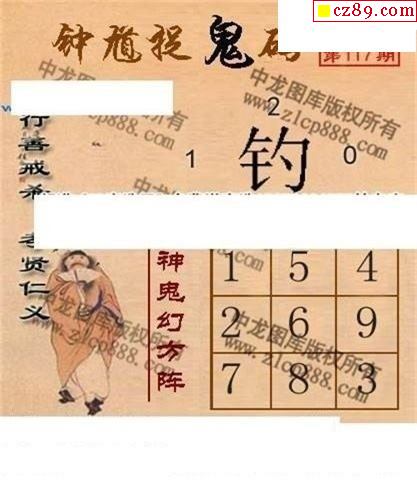 cz89.com
钟馗捉鬼码
第117期
中龙图库版权所有
www.zlcp888.com
2
1 钓 0
行善戒
老贤仁义
神鬼幻方阵
1 5 4
2 6 9
7 8 3
中龙图库版权所有
www.zlcp888.com